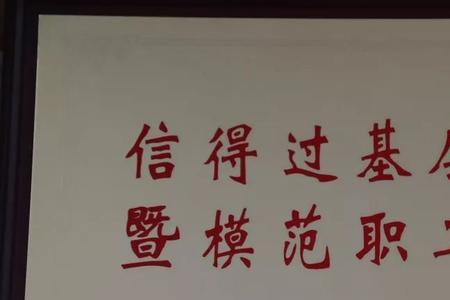 信得过基
暨模范职